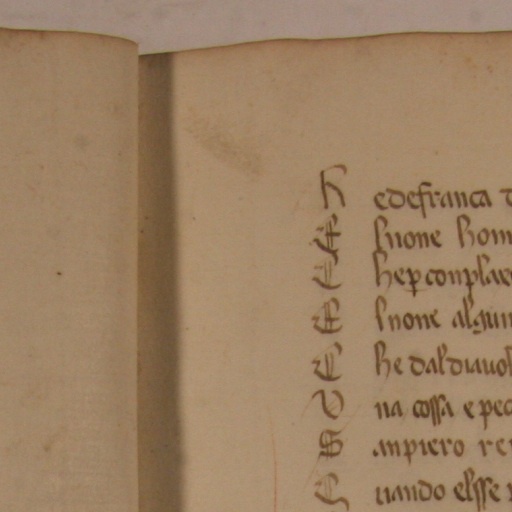 R edefranca
E luone hom
C heper conplaer
E luone alqun
C he dal diavol
U na cossa e pec
S an piero re
C uando elsse